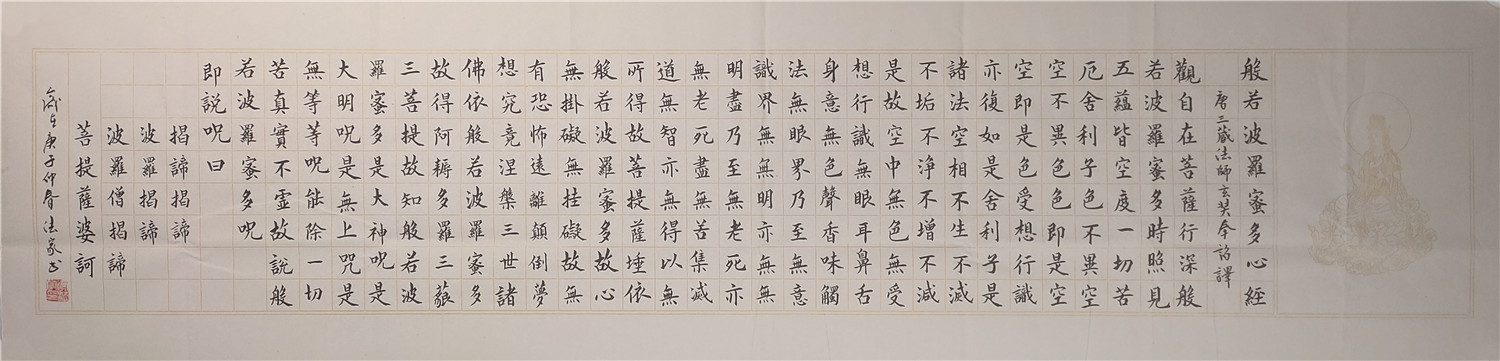 般若波羅蜜多心經
唐三藏法師玄奘奉詔譯
觀自在菩薩行深般
若波羅蜜多時照見
五蘊皆空度一切苦
厄舍利子色不異空
空不異色色即是空
空即是色受想行識
亦復如是舍利子是
諸法空相不生不滅
不垢不淨不增不減
是故空中無色無受
想行識無眼耳鼻舌
身意無色聲香味觸
法無眼界乃至無意
識界無無明亦無無
明盡乃至無老死亦
無老死盡無苦集滅
道無智亦無得以無
所得故菩提薩埵依
般若波羅蜜多故心
無掛礙無挂礙故無
有恐怖遠離顛倒夢
想究竟涅槃三世諸
佛依般若波羅蜜多
故得阿耨多羅三藐
三菩提故知般若波
羅蜜多是大神呪是
大明呪是無上咒是
無等等呪能除一切
苦真實不虛故說般
若波羅蜜多呪
即說呪曰
揭諦揭諦
波羅揭諦
波羅僧揭諦
菩提薩婆訶
歲在庚子仲春法家书